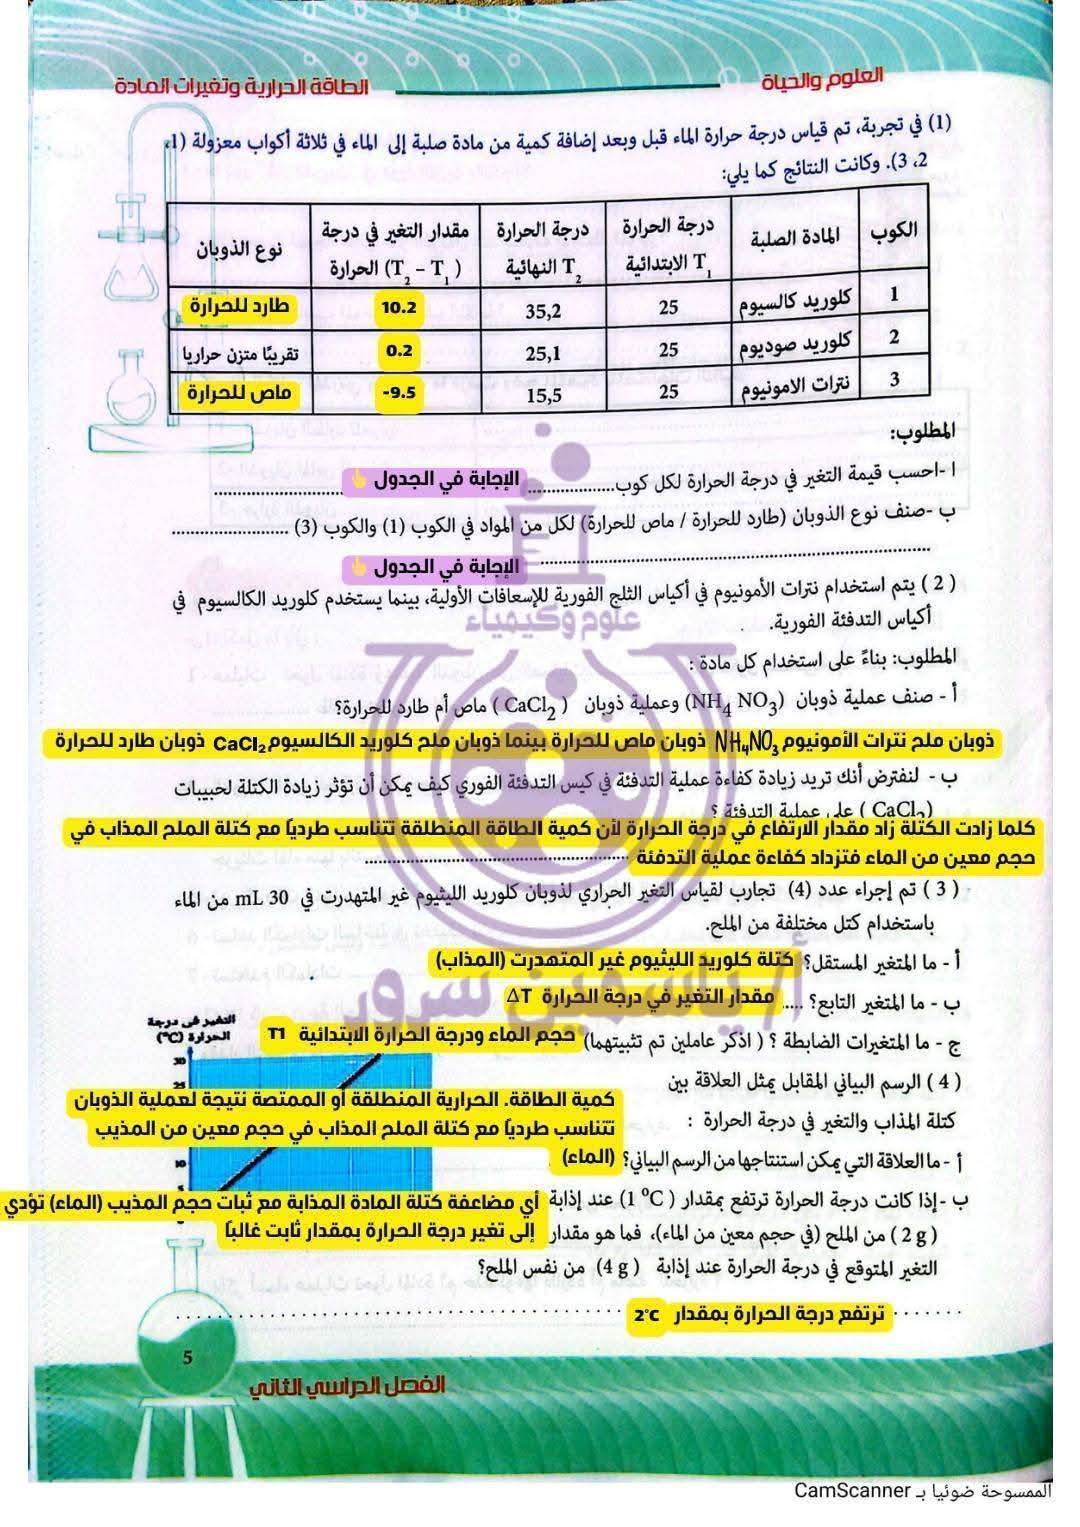 العلوم والحياة
الطاقة الحرارية وتغيرات المادة
(1) في تجربة، تم قياس درجة حرارة الماء قبل وبعد إضافة كمية من مادة صلبة إلى الماء في ثلاثة أكواب معزولة (1،
2، 3). وكانت النتائج كما يلي:
الكوب | المادة الصلبة | درجة الحرارة T1 الابتدائية | درجة الحرارة T2 النهائية | مقدار التغير في درجة الحرارة (T2 – T1) | نوع الذوبان
1 | كلوريد كالسيوم | 25 | 35,2 | 10.2 | طارد للحرارة
2 | كلوريد صوديوم | 25 | 25,1 | 0.2 | تقريبًا متزن حراريا
3 | نترات الامونيوم | 25 | 15,5 | -9.5 | ماص للحرارة
المطلوب:
ا -احسب قيمة التغير في درجة الحرارة لكل كوب................ الإجابة في الجدول 👆 ....................
ب -صنف نوع الذوبان (طارد للحرارة / ماص للحرارة) لكل من المواد في الكوب (1) والكوب (3) ......................
الإجابة في الجدول 👆
( 2 ) يتم استخدام نترات الأمونيوم في أكياس الثلج الفورية للإسعافات الأولية، بينما يستخدم كلوريد الكالسيوم في
أكياس التدفئة الفورية.
علوم وكيمياء
المطلوب: بناءً على استخدام كل مادة :
أ - صنف عملية ذوبان (NH4 NO3) وعملية ذوبان ( CaCl2 ) ماص أم طارد للحرارة؟
ذوبان ملح نترات الأمونيوم NH4NO3 ذوبان ماص للحرارة بينما ذوبان ملح كلوريد الكالسيوم CaCl2 ذوبان طارد للحرارة
ب - لنفترض أنك تريد زيادة كفاءة عملية التدفئة في كيس التدفئة الفوري كيف يمكن أن تؤثر زيادة الكتلة لحبيبات
( CaCl2 ) على عملية التدفئة ؟
كلما زادت الكتلة زاد مقدار الارتفاع في درجة الحرارة لأن كمية الطاقة المنطلقة تتناسب طرديًا مع كتلة الملح المذاب في
حجم معين من الماء فتزداد كفاءة عملية التدفئة
( 3 ) تم إجراء عدد (4) تجارب لقياس التغير الحراري لذوبان كلوريد الليثيوم غير المتهدرت في 30 mL من الماء
باستخدام كتل مختلفة من الملح.
أ - ما المتغير المستقل؟ كتلة كلوريد الليثيوم غير المتهدرت (المذاب)
ب - ما المتغير التابع؟ .... مقدار التغير في درجة الحرارة ΔT
أ/ ياسمين سرور
ج - ما المتغيرات الضابطة ؟ ( اذكر عاملين تم تثبيتهما) حجم الماء ودرجة الحرارة الابتدائية T1
التغير في درجة
الحرارة (°C)
30
25
10
( 4 ) الرسم البياني المقابل يمثل العلاقة بين
كتلة المذاب والتغير في درجة الحرارة :
أ - ما العلاقة التي يمكن استنتاجها من الرسم البياني؟
كمية الطاقة. الحرارية المنطلقة أو الممتصة نتيجة لعملية الذوبان
تتناسب طرديًا مع كتلة الملح المذاب في حجم معين من المذيب
(الماء)
أي مضاعفة كتلة المادة المذابة مع ثبات حجم المذيب (الماء) تؤدي
إلى تغير درجة الحرارة بمقدار ثابت غالبًا
ب -إذا كانت درجة الحرارة ترتفع بمقدار ( 1 °C) عند إذابة
( 2 g ) من الملح (في حجم معين من الماء)، فما هو مقدار
التغير المتوقع في درجة الحرارة عند إذابة ( 4 g) من نفس الملح؟
ترتفع درجة الحرارة بمقدار 2°C
5
الفصل الدراسي الثاني
الممسوحة ضوئيا بـ CamScanner